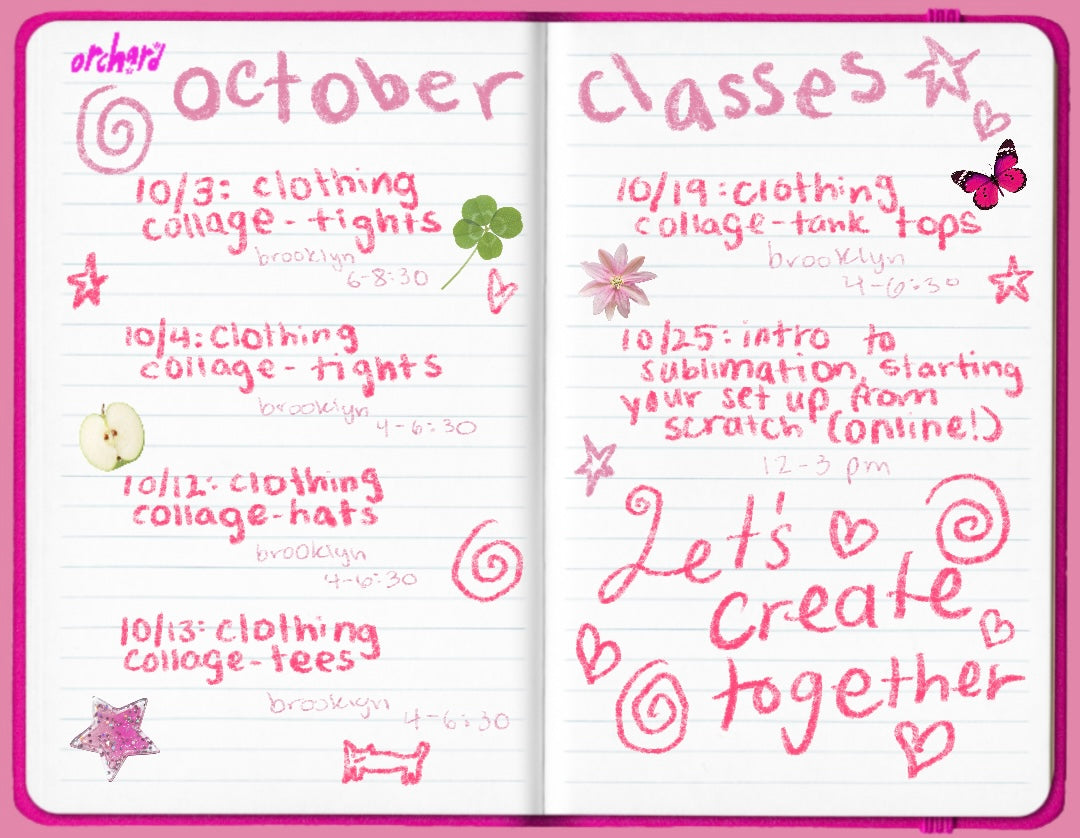 orchard
october classes
10/3: clothing
collage - tights
brooklyn
6-8:30
10/4: Clothing
collage - tights
brooklyn
4-6:30
10/12: clothing
collage-hats
brooklyn
4-6:30
10/13: clothing
collage-tees
brooklyn
4-6:30
10/19: clothing
collage-tank tops
brooklyn
4-6:30
10/25: intro to
sublimation, starting
your set up from
scratch (online!)
12-3 pm
Let's
create
together